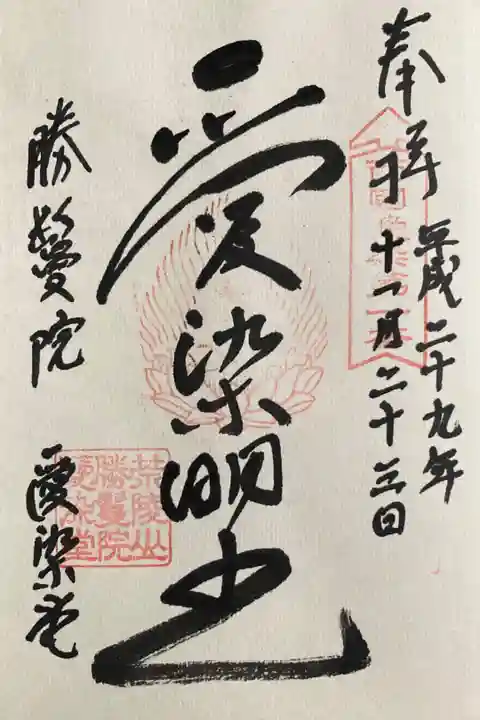 奉拝
平成二十九年
十一月二十三日
愛染明王
勝鬘院 愛染堂
荒陵山
勝鬘院
愛染堂